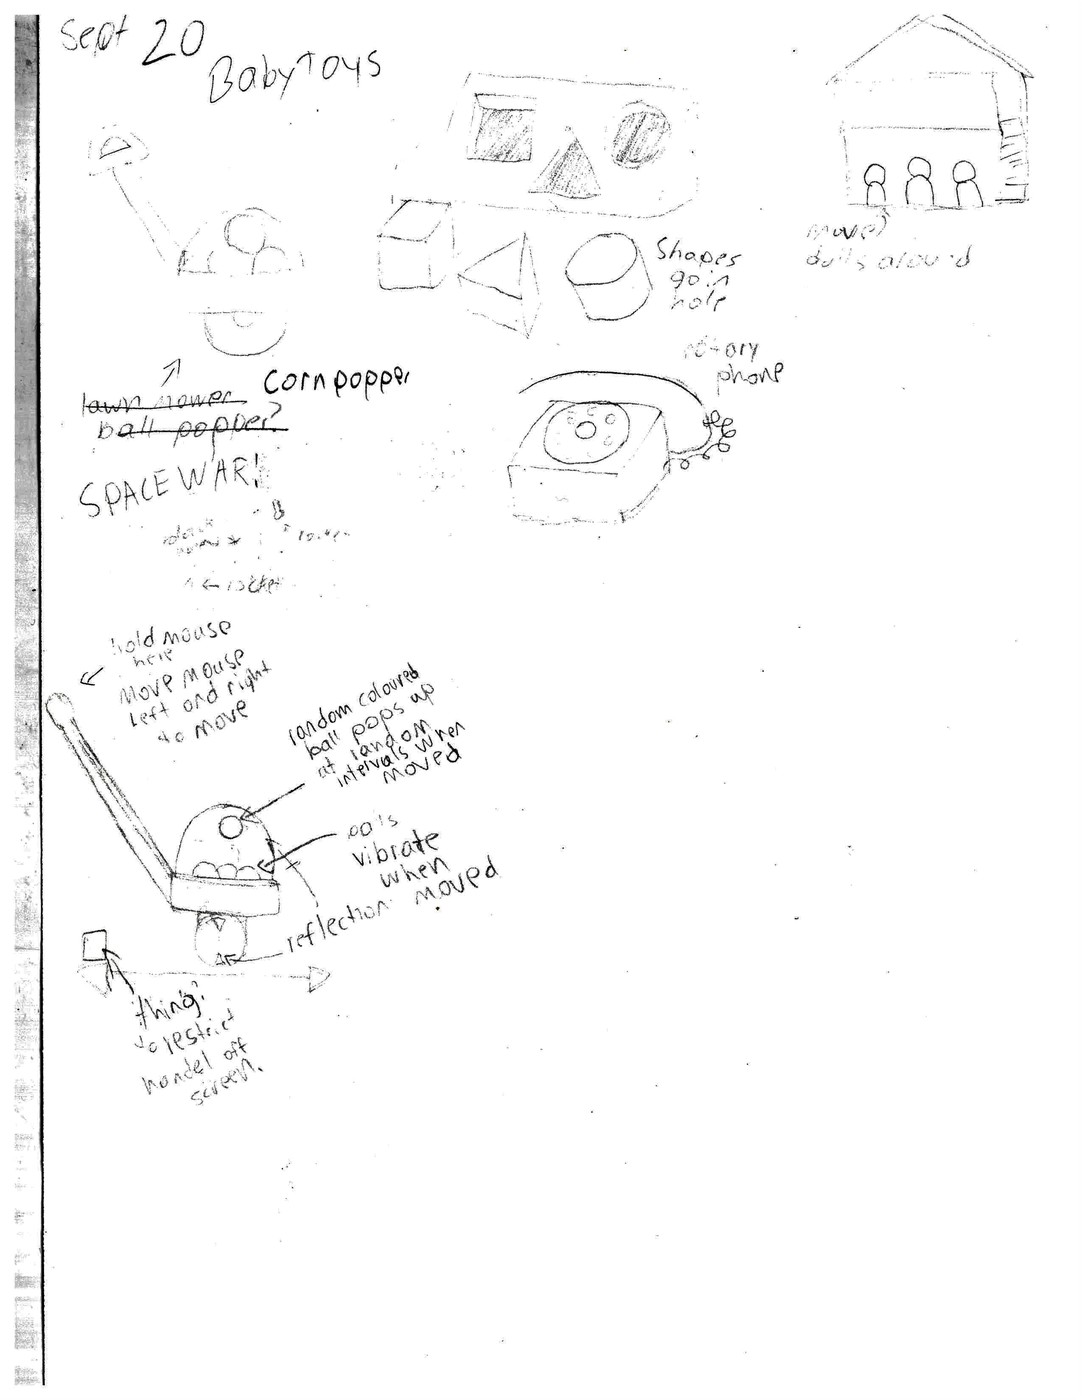 Sept 20
Baby Toys
Shapes
go in
hole
move
dolls around
rotary
phone
Corn popper
lawn mower
ball popper?
SPACEWAR!
rocket
← rocket
hold mouse
here
Move mouse
left and right
to move
random coloured
ball pops up
at random
intervals when
moved
balls
vibrate
when
moved
reflection
thing?
to restrict
handel off
screen.